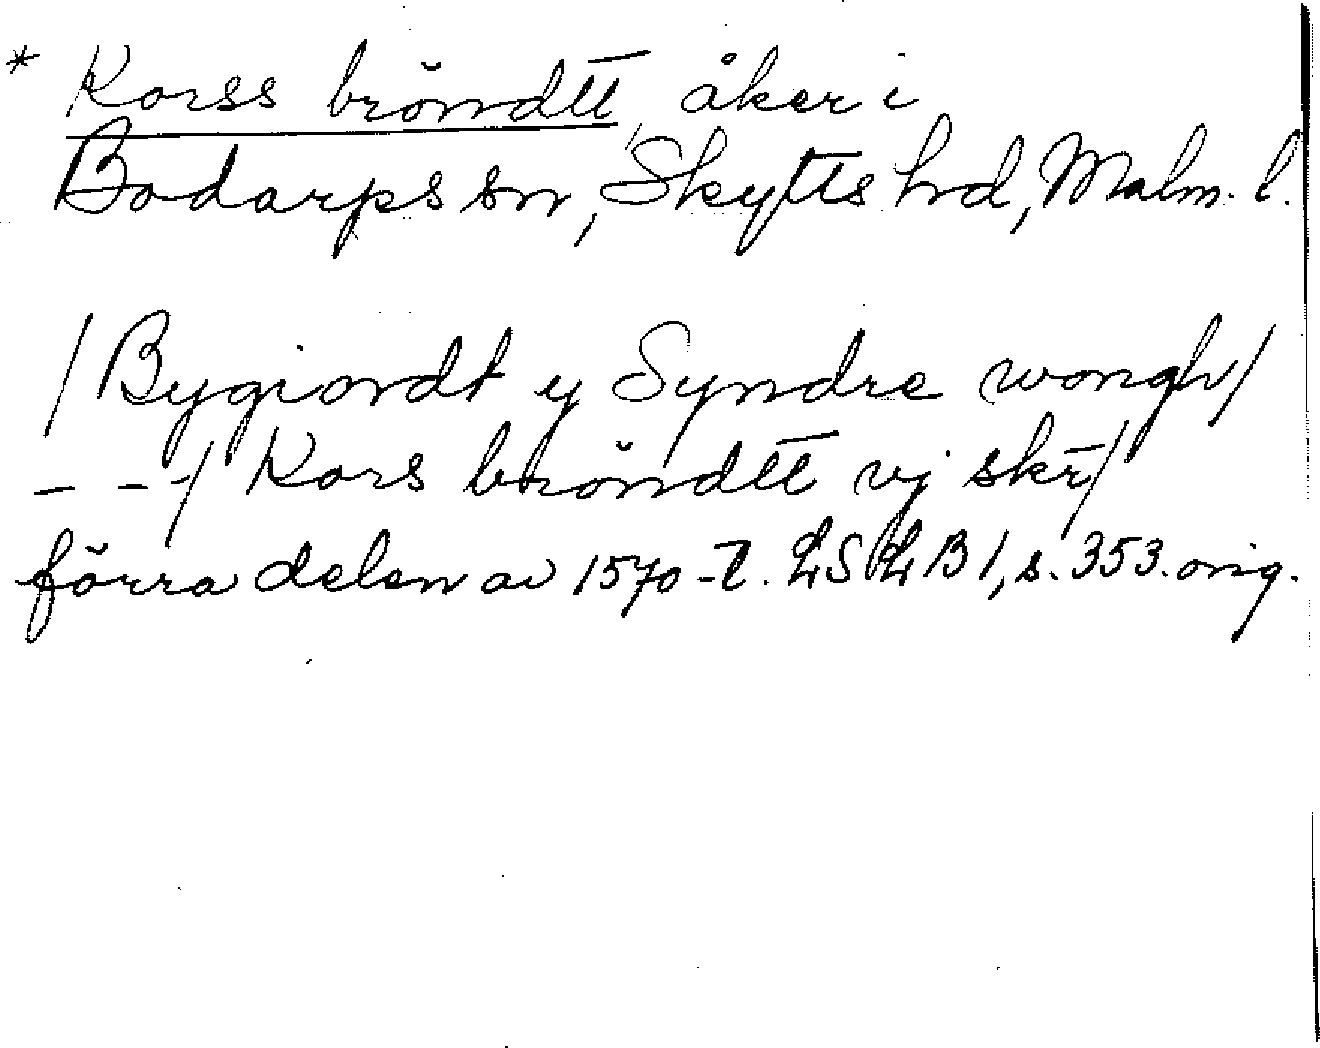 * Korss bröndtt, åker i
Bodarps sn, Skytts hd, Malm. l.
/Bygiordt y Syndre wongh/
- - -/ Kors bröndtt vj skr/
förra delen av 1570-t. LSLB 1, s. 353. orig.